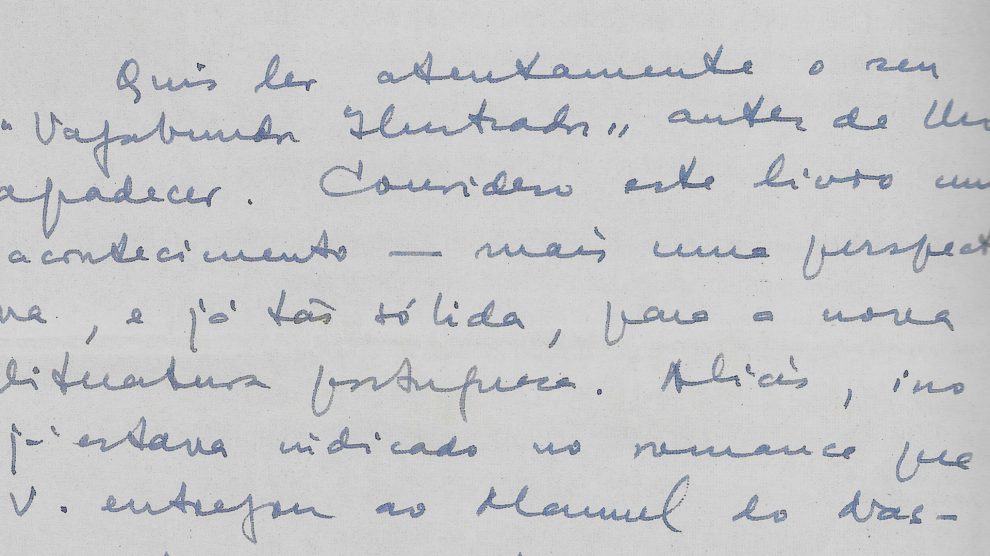 Quis ler atentamente o seu
"Vagabundo Ilustrado" antes de lhe
agradecer. Considero este livro um
acontecimento — mais uma perspecti
va, e já tão sólida, para a nova
literatura portuguesa. Aliás, isso
já estava indicado no romance que
V. entregou ao Manuel do Nas-